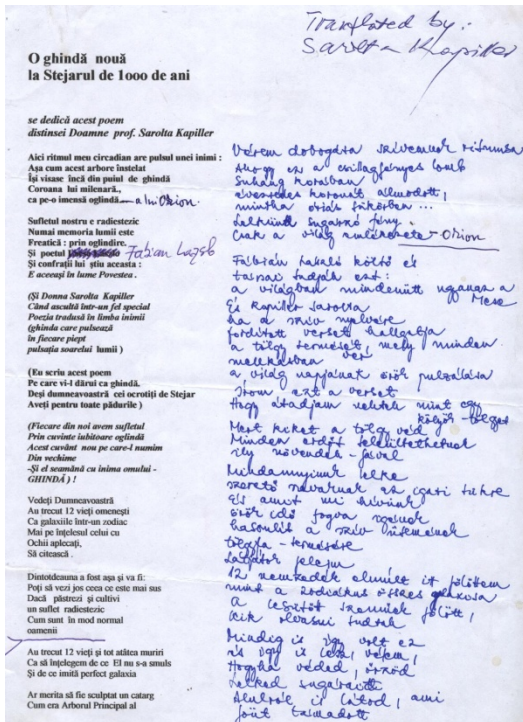 Translated by:
Sarolta Kapiller
O ghindă nouă
la Stejarul de 1000 de ani
se dedică acest poem
distinsei Doamne prof. Sarolta Kapiller
Aici ritmul meu circadian are pulsul unei inimi :
Aşa cum acest arbore înstelat
Îşi visase încă din puiul de ghindă
Coroana lui milenară,
ca pe-o imensă oglindă – a lui Orion.
Sufletul nostru e radiestezic
Numai memoria lumii este
Freatică : prin oglindire.
Şi poetul Fabian Lazslo
Şi confraţii lui ştiu aceasta :
E aceeaşi în lume Povestea .
(Şi Donna Sarolta Kapiller
Când ascultă într-un fel special
Poezia tradusă în limba inimii
(ghinda care pulsează
în fiecare piept
pulsaţia soarelui lumii )
(Eu scriu acest poem
Pe care vi-l dărui ca ghindă.
Deşi dumneavoastră cei ocrotiţi de Stejar
Aveţi pentru toate pădurile )
(Fiecare din noi avem sufletul
Prin cuvinte iubitoare oglindă
Acest cuvânt nou pe care-l numim
Din vechime
-Şi el seamănă cu inima omului -
GHINDĂ ) !
Vedeţi Dumneavoastră
Au trecut 12 vieţi omeneşti
Ca galaxiile într-un zodiac
Mai pe înţelesul celui cu
Ochii aplecaţi,
Să citească .
Dintotdeauna a fost aşa şi va fi:
Poţi să vezi jos ceea ce este mai sus
Dacă păstrezi şi cultivi
un suflet radiestezic
Cum sunt în mod normal
oamenii
Au trecut 12 vieţi şi tot atâtea muriri
Ca să înţelegem de ce El nu s-a smuls
Şi de ce imită perfect galaxia
Ar merita să fie sculptat un catarg
Cum era Arborul Principal al
Vérem dobogása szívemnek ritmusa
Ahogy ez a csillagfényes lomb
suháng korában
évezredes koronát álmodott,
mintha óriás tükörben ...
Lelkünk sugárzó fény.
Csak a világ emlékezete – Orion
Fábián László költő és
társai tudják ezt:
a világban mindenütt ugyanaz a
Mese
És Kapiller Sarolta
ha a szív nyelvére
fordított verset hallgatja
a tölgy termését, mely minden
mellkasban ver
a világ napjának örök pulzálása
Írom ezt a verset
Hogy átadjam nektek mint egy
kölyök-tölgyet
Mert kiket a tölgy véd
Minden erdőt
ily növendék-fával
Mindannyiunk lelke
szerető szavaknak az igazi tükre
És amit mi hívunk
örök idő fogva
hasonlít a szív ütemének
tölgyfa-termésére
12 nemzedék elmúlt itt fölöttem
mint a zodiákus összes galaxisa
A lesütött szemnek fölött,
kik olvasni tudtak
Mindig is így volt ez
és így is lesz, vélem,
Hogyha véded, őrzöd
Lelked sugarait
Alulról is látod, ami
fönt támadott